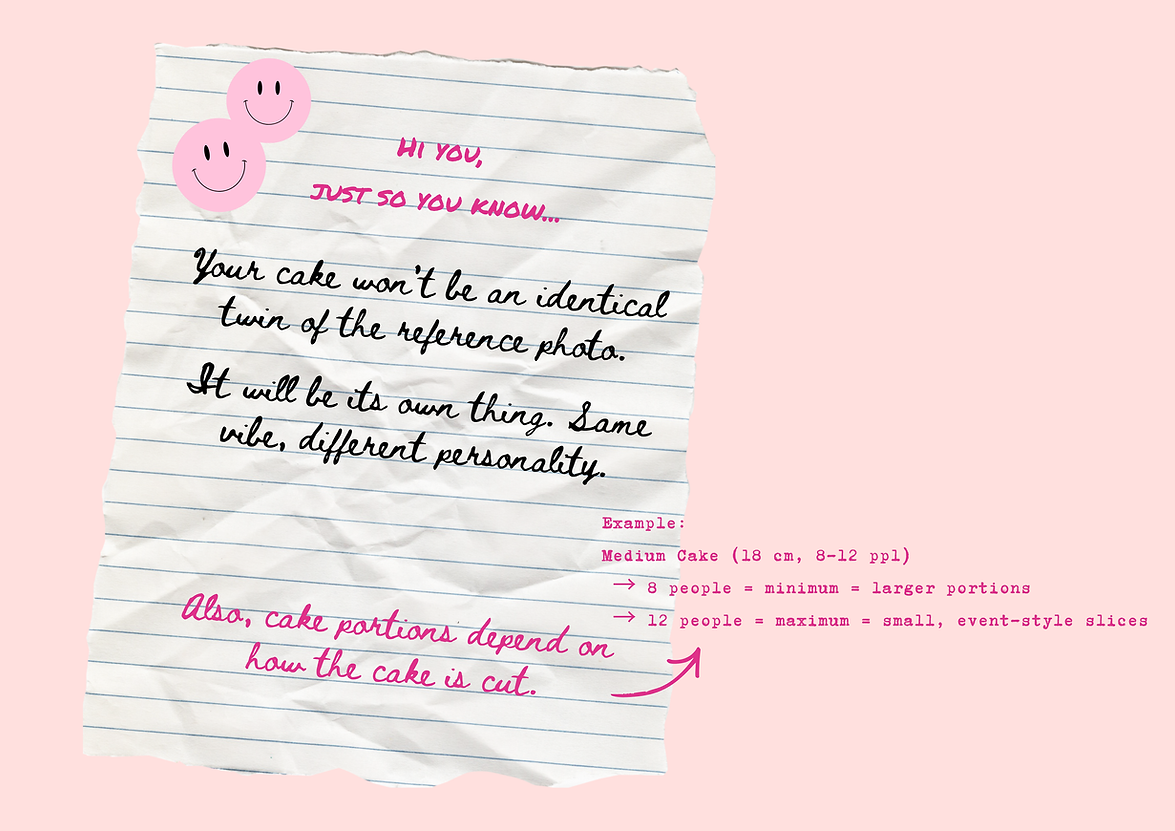 Hi you,
just so you know...
Your cake won't be an identical
twin of the reference photo.
It will be its own thing. Same
vibe, different personality.
Example:
Medium Cake (18 cm, 8-12 ppl)
→ 8 people = minimum = larger portions
→ 12 people = maximum = small, event-style slices
Also, cake portions depend on
how the cake is cut.